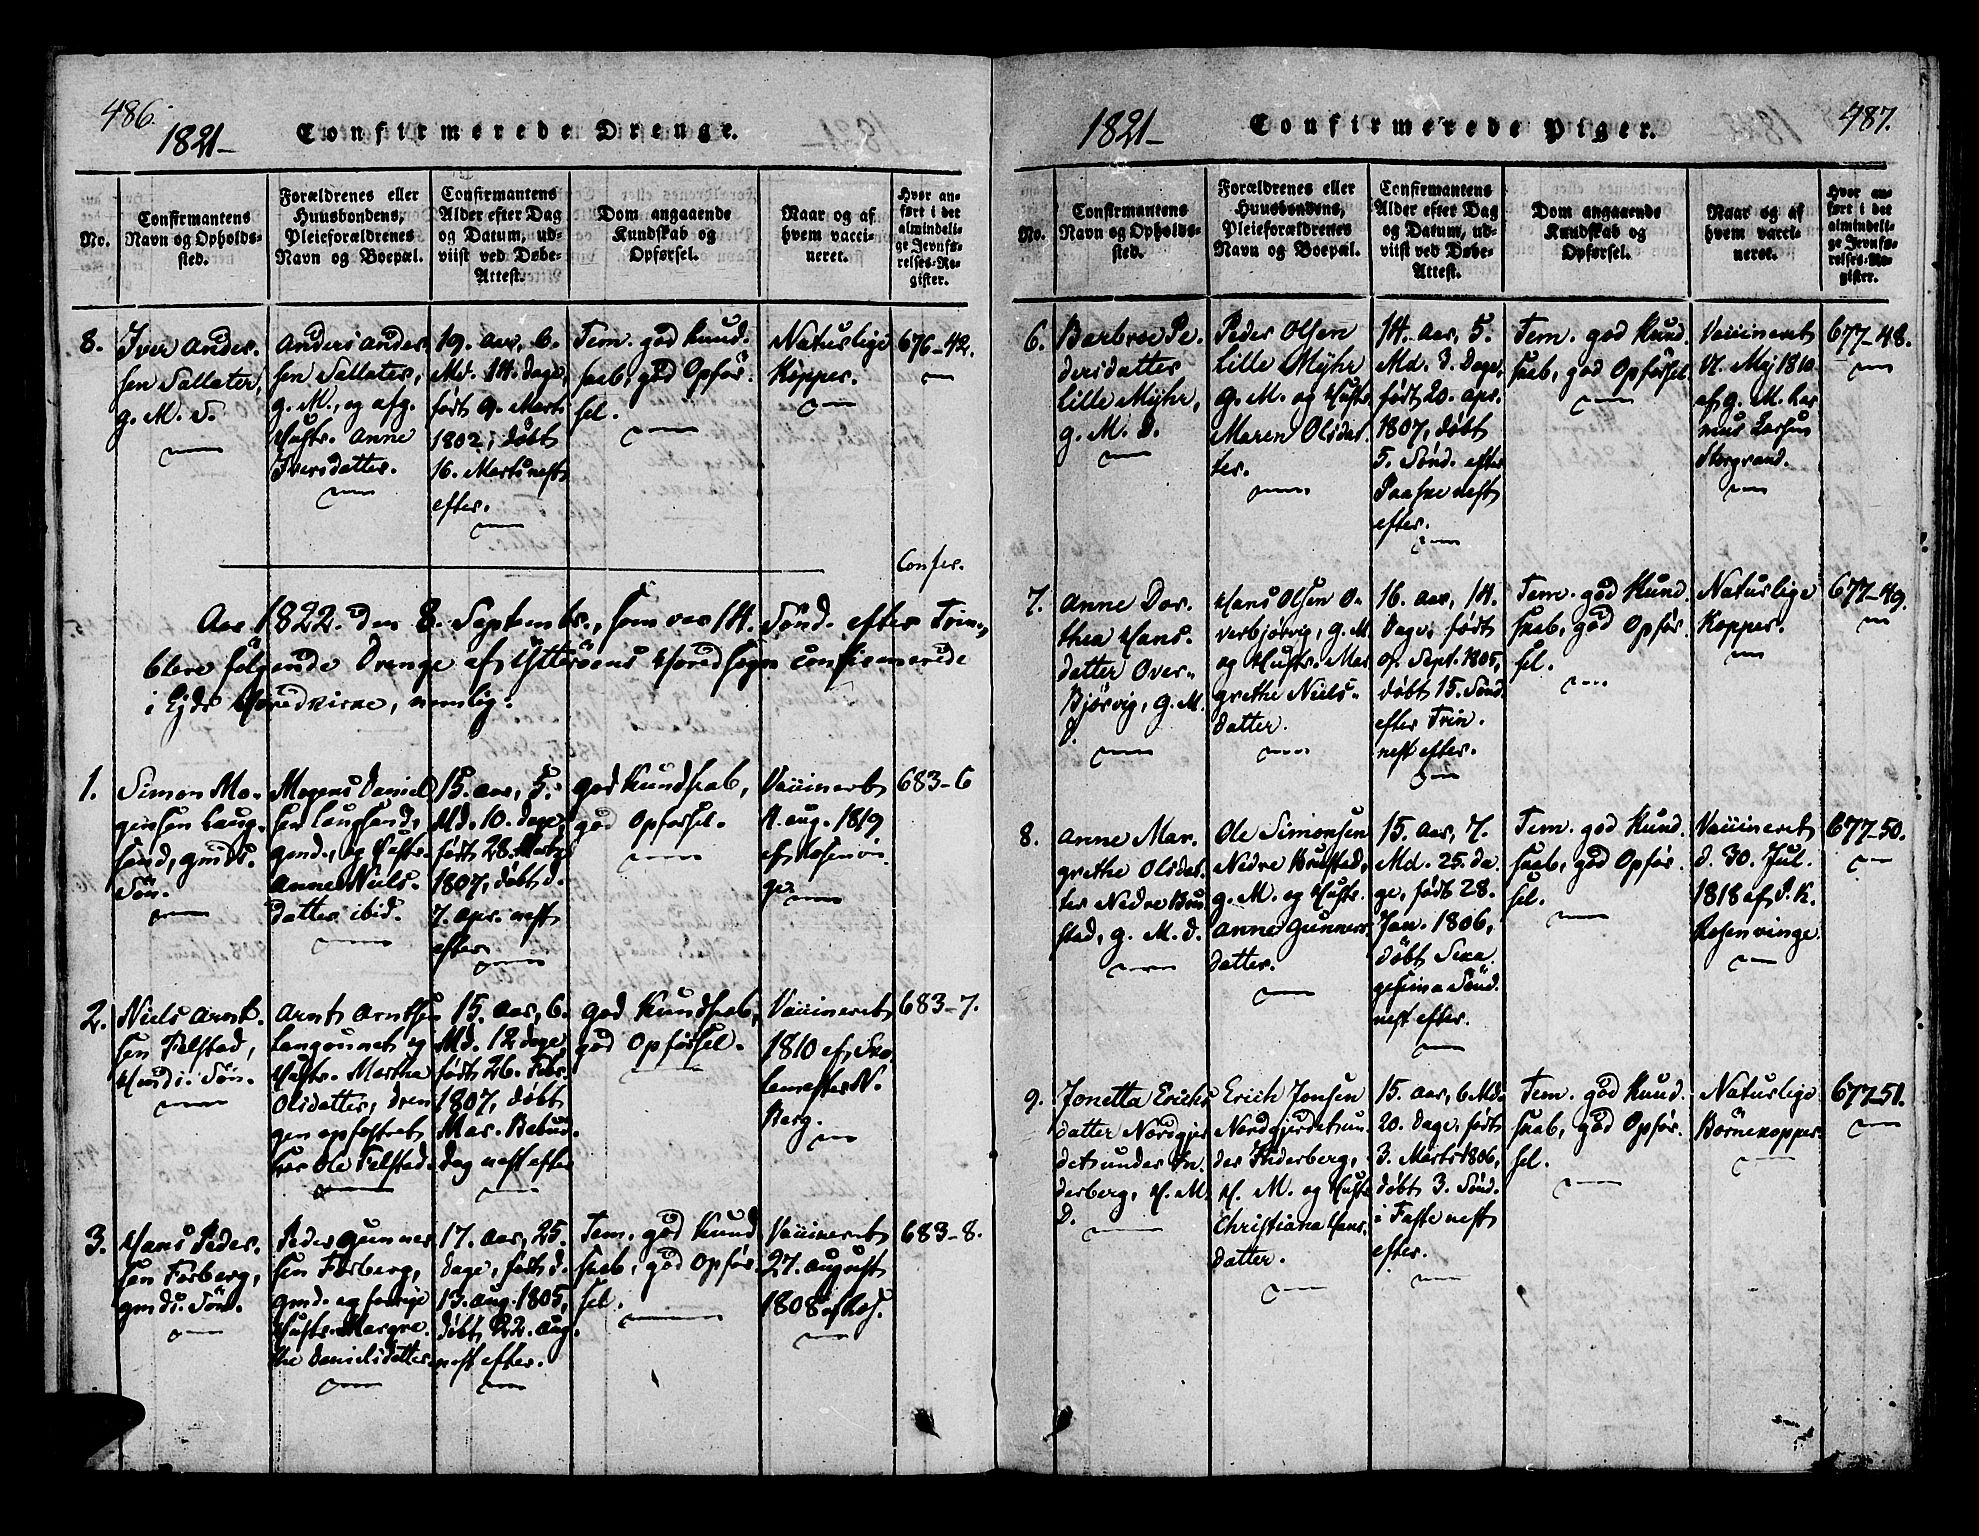 486.
1821_
Confirmerede Drenge.
No.
Confirmantens
Navn og Opholds-
sted.
Forældrenes eller
Huusbondens,
Pleieforældrenes
Navn og Boepæl.
Confirmantens
Alder efter Dag
og Datum, ud-
viist ved Døbe-
Attest.
Dom angaaende
Kundskab og
Opførsel.
Naar og af
hvem vacci-
neret.
Hvor an-
ført i det
almindeli-
ge Jevnfø-
relses-Re-
gister.
8.
Iver Anders.
sen Sallater,
g. M. S.
Anders Anders
sen Sallater,
g. M., og afg.
Hustr. Anne
Iversdatter.
19. Aar, 6.
Md. 14. Dage,
født 9. Mart.
1802, døbt
16. Marts nest
efter.
Tem. god Kund-
skab, god Opfør-
sel.
Naturlige
Kopper.
676-42.
Confer.
Aar 1822. den 8. Septembr., som var 14. Sönd. efter Trin.,
bleve følgende Drenge af Ytterøens Hovedsogn confirmerede
i Ejds Hovedkirke, nemlig:
1.
Simon Mo-
gensen Laug-
sand, gmds.
Søn.
Mogens Daniel
sen Laugsand,
gmd., og Hustr.
Anne Niels-
datter ibid.
15. Aar, 5.
Md. 10. Dage,
født 28. Marts
1807, døbt d.
7. Apr. nest
efter.
god Kundskab,
god Opførsel.
Vaccineret
Aug. 1819
af Rosenvin-
ge.
683-6
2.
Niels Arnt-
sen Felstad,
Søn.
Arnt Arntsen
og
Hustr. Martha
Olsdatter, dren
gen opfostret
hos Ole Felstad.
15. Aar, 6.
Md. 12 Dage,
født 26. Febr.
1807, døbt
Mar. Bebud.
Dag nest efter
god Kundskab,
god Opførsel.
Vaccineret
1810 af Sko-
lemester N.
Berg.
683-7.
3.
Hans Peder-
sen Forberg,
gmds. Søn.
Peder Gunner
sen Forberg,
gmd. og forrige
Hustr. Margre-
the Danielsdatter.
17. Aar, 25.
Dage, født d.
13. Aug. 1805,
døbt 22. Aug.
nest efter.
Tem. god Kund
skab, god Opfør-
sel.
Vaccineret
27. August
1808 af
683-8.
1821_
Confirmerede Piger.
487.
No.
Confirmantens
Navn og Opholds-
sted.
Forældrenes eller
Huusbondens,
Pleieforældrenes
Navn og Boepæl.
Confirmantens
Alder efter Dag
og Datum, ud-
viist ved Døbe-
Attest.
Dom angaaende
Kundskab og
Opførsel.
Naar og af
hvem vacci-
neret.
Hvor an-
ført i det
almindeli-
ge Jevnfø-
relses-Re-
gister.
6.
Barbroe Pe-
dersdatter
lille Myhr,
g. M. D.
Peder Olsen
lille Myhr
G. M. og Hustr.
Maren Olsdat-
ter.
14. Aar, 5.
Md. 3. Dage,
født 20. Apr.
1807, døbt
5. Sönd. efter
Paaske nest
efter.
Tem. god Kund-
skab, god Opførsel.
Vaccineret
17. Mej 1810
af g. M. Ras
mus Larsen
Storgrand.
677-48.
7.
Anne Dor-
thea Hans-
datter Over-
Bjørvig, G. M.
D.
Hans Olsen O-
verbjørvig, G. M.
og Hustr. Mar
grethe Niels-
datter.
16. Aar, 14.
Dage, født
Sept. 1805,
døbt 15. Sönd.
efter Trin.
nest efter.
Tem. god Kund-
skab, god Opfør-
sel.
Naturlige
Kopper.
677-49.
8.
Anne Mar-
grethe Olsdat-
ter Nedre Bru
stad, g. M. D.
Ole Simonsen
Nedre Brustad,
g. M. og Hustr.
Anne Gunners
datter.
15. Aar, 7.
Md. 25. Da
ge, født 28.
Jan. 1806,
døbt Sexa
gesima Sönd.
nest efter.
Tem. god Kund-
skab, god Opfør-
sel.
Vaccineret
d. 30. Jul.
1818 af P. K.
Rosenvinge.
677-50.
9.
Jonetta Erichs
datter Nordgjer
det under In-
derberg, H. M.
D.
Erich Jonsen
Nordgjerdet un-
der Inderberg,
H. M. og Hustr.
Christiana Hans-
datter.
15. Aar, 6 Md.
20. Dage, født
3. Marts 1806,
døbt 3. Sönd.
i Faste nest
efter.
Tem. god Kund-
skab, god Opfør-
sel.
Naturlige
Børnekopper.
677-51.